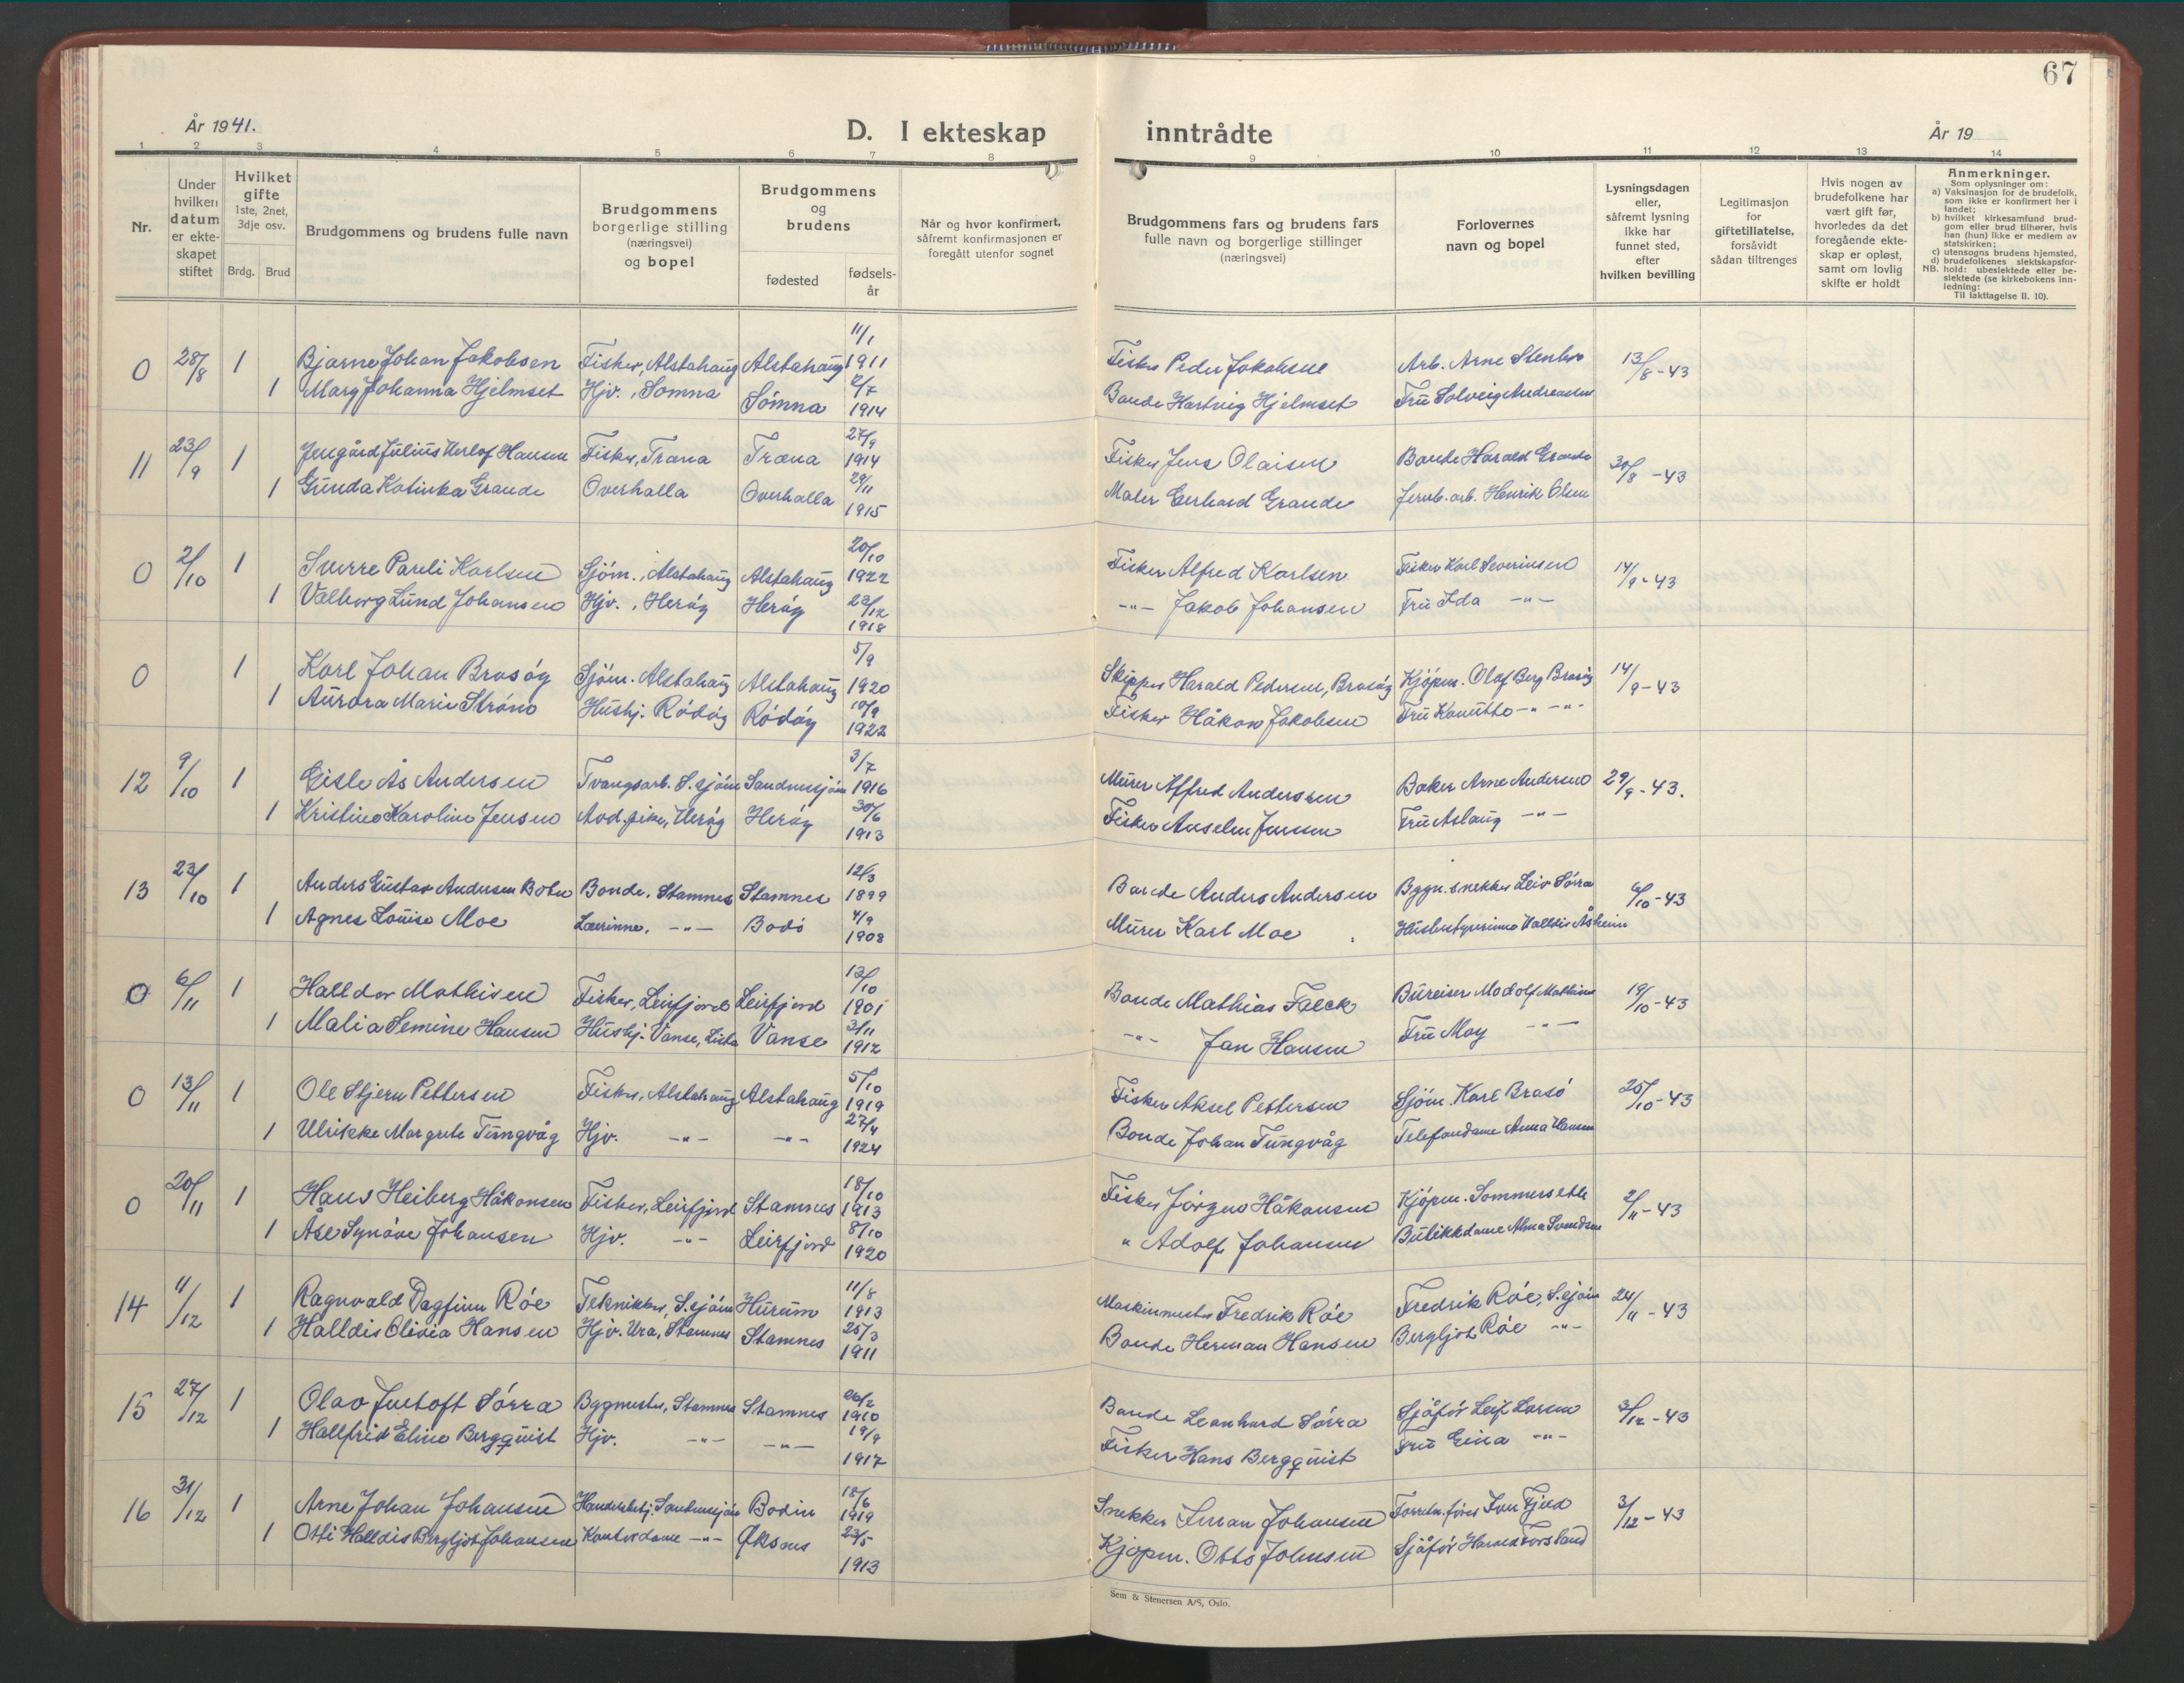 67
År 1941.
D. I ekteskap inntrådte
År 19
1 2 3 4 5 6 7 8 9 10 11 12 13 14
Nr.
Under hvilken datum er ekteskapet stiftet
Hvilket gifte 1ste, 2net, 3dje osv.
Brdg. Brud
Brudgommens og brudens fulle navn
Brudgommens borgerlige stilling (næringsvei) og bopel
Brudgommens og brudens
fødested
fødselsår
Når og hvor konfirmert, såfremt konfirmasjonen er foregått utenfor sognet
Brudgommens fars og brudens fars fulle navn og borgerlige stillinger (næringsvei)
Forlovernes navn og bopel
Lysningsdagen eller, såfremt lysning ikke har funnet sted, efter hvilken bevilling
Legitimasjon for giftetillatelse, forsåvidt sådan tiltrenges
Hvis nogen av brudefolkene har vært gift før, hvorledes da det foregående ekteskap er opløst, samt om lovlig skifte er holdt
Anmerkninger.
Som oplysninger om:
a) Vaksinasjon for de brudefolk, som ikke er konfirmert her i landet;
b) hvilket kirkesamfund brudgom eller brud tilhører, hvis han (hun) ikke er medlem av statskirken;
c) utensogns brudens hjemsted,
d) brudefolkenes slektskapsforhold: ubeslektede eller beslektede (se kirkebokens innledning:
NB.
Til iakttagelse II. 10).
0 28/8 1 Bjarne Johan Jakobsen Fisker, Alstahaug Alstahaug 11/1 1911 Fisker Peder Jakobsen Arb. Arne 13/8-43
1 Mary Johanna Hjelmset Hjv., Sømna Sømna 2/7 1914 Bonde Hartvig Hjelmset Fru Solveig Andreassen
11 23/9 1 Julius Hansen Fisker, Træna Træna 27/9 1914 Fisker Jens Olaisen Bonde Harald Grande 30/8-43
1 Gunda Katinka Grande Overhalla Overhalla 29/11 1915 Maler Gerhard Grande Jernb. arb. Henrik Olsen
0 2/10 1 Sverre Pareli Karlsen Sjøm., Alstahaug Alstahaug 20/10 1922 Fisker Alfred Karlsen Fisker Karl Severinsen 14/9-43
1 Valborg Lund Johansen Hjv., Herøy Herøy 23/12 1918 -"- Jakob Johansen Fru Ida -"-
0 1 Karl Johan Brasøy Sjøm. Alstahaug Alstahaug 5/9 1920 Skipper Harald Pedersen, Brasøy Kjøpm. Olaf Berg Brasøy 14/9-43
1 Aurora Marie Strøno Hushj. Rødøy Rødøy 10/9 1922 Fisker Håkon Jakobsen Fru -"- -"-
12 9/10 1 Gisle Ås Andersen Tvangsarb. S.sjøen Sandnessjøen 3/7 1916 Murer Alfred Anderssen Baker Arne Andersen 29/9-43.
1 Kristine Karoline Jensen pike, Herøy Herøy 30/6 1913 Fisker Anselm Jenssen Fru Aslaug -"-
13 23/10 1 Anders Gustav Andersen Botn Bonde, Stamnes Stamnes 12/3 1899 Bonde Anders Andersen Bygn. snekker Leiv Sørra 6/10-43
1 Agnes Louise Moe Lærerinne, -"- Bodø 4/9 1908 Murer Karl Moe Husbestyrerinne Halldis Åsheim
0 6/11 1 Halldor Mathisen Fisker, Leirfjord Leirfjord 13/10 1901 Bonde Mathias Falck Bureiser Modolf Mathisen 19/10-43
1 Malia Semine Hansen Hushj. Vanse, Lista Vanse 3/11 1912 -"- Jan Hansen Fru May -"-
0 13/11 1 Ole Stjern Pettersen Fisker, Alstahaug Alstahaug 5/10 1919 Fisker Aksel Pettersen Sjøm. Karl Brasø 25/10-43
1 Ulrikke Margrete Tungvåg Hjv. -"- -"- 27/4 1924 Bonde Johan Tungvåg Telefondame Anna Hansen
0 20/11 1 Hans Heiberg Håkonsen Fisker, Leirfjord Stamnes 18/10 1913 Fisker Jørgen Håkonsen Kjøpm. Sommerseth 2/11-43
1 Åse Synøve Johansen Hjv. -"- Leirfjord 8/10 1920 " Adolf Johansen Butikkdame Alma Svendsen
14 11/12 1 Ragnvald Dagfinn Røe Tekniker, S.sjøen Hurum 11/8 1913 Maskinmester Fredrik Røe Fredrik Røe, S.sjøen 24/11-43
1 Halldis Olivia Hansen Hjv. Ura, Stamnes Stamnes 25/3 1911 Bonde Herman Hansen Bergljot Røe -"-
15 27/12 1 Olav Justoft Sørra Bygmester, Stamnes Stamnes 26/2 1910 Bonde Leonhard Sørra Sjåfør Leif Larsen 3/12-43
1 Hallfrid Eline Bergquist Hjv. -"- -"- 19/9 1917 Fisker Hans Bergquist Fru Gina -"-
16 31/12 1 Arne Johan Johansen Handelsbetj. Sandnessjøen Bodin 18/6 1919 Snekker Johansen 3/12-43
1 Otti Halldis Bergljot Johansen Kontordame -"- Øksnes 23/5 1913 Kjøpm. Otto Johnsen Sjåfør
Sem & Stenersen A/S, Oslo.